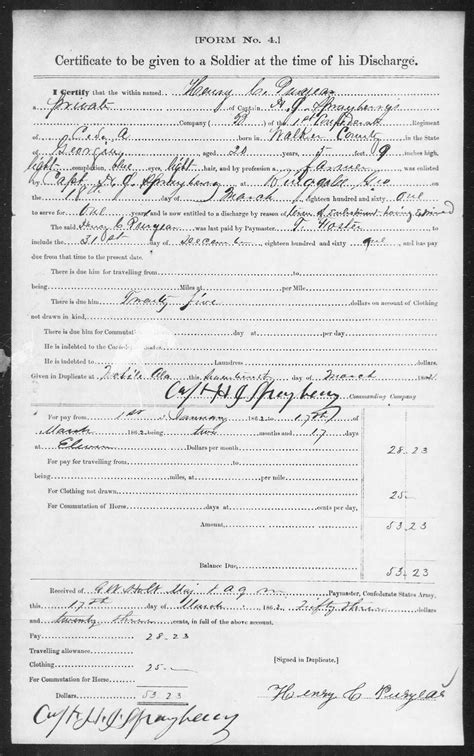 [FORM No. 4.]
Certificate to be given to a Soldier at the time of his Discharge.
I Certify that the within named Henry C. Puryear
a private of Captain H. J. Sprayberry's
Company (D) 1st Confederate Regiment
of C. S. A. born in Walker County in the State
of Georgia aged 20 years 5 feet 9 inches high,
light complexion, blue eyes, light hair, and by profession a farmer was enlisted
by Capt. H. J. Sprayberry at Ringgold Geo
on the day of March eighteen hundred and sixty one
to serve for one years, and is now entitled to a discharge by reason of term of enlistment having expired
The said Henry C Puryear was last paid by Paymaster T. Foster to
include the 31st day of December eighteen hundred and sixty one, and has pay
due from that time to the present date.
There is due him for travelling from to
being Miles at per Mile.
There is due him Twenty five dollars on account of Clothing
not drawn in kind.
There is due him for Commutation day at per day.
He is indebted to the Confederate
He is indebted to Laundress dollars.
Given in Duplicate at Mobile Ala this seventeenth day of March 1862
Capt H. J. Sprayberry Commanding Company
For pay from 1st January 1862 to 17th
March 1862, being two months and 17 days
at Eleven Dollars per month, 28 23
For pay for travelling from to
being miles, at per mile.
For Clothing not drawn, 25
For Commutation of Horse days at cents per day,
Amount, 53 23
Balance Due, 53.23
Received of Maj Paymaster, Confederate States Army,
this 17th day of March 1862, fifty three dollars
and twenty three cents, in full of the above account.
Pay 28-23
Travelling allowance.
Clothing 25
For Commutation for Horse
[Signed in Duplicate.]
Dollars 53 23
Henry C Puryear
Capt. H. J. Sprayberry